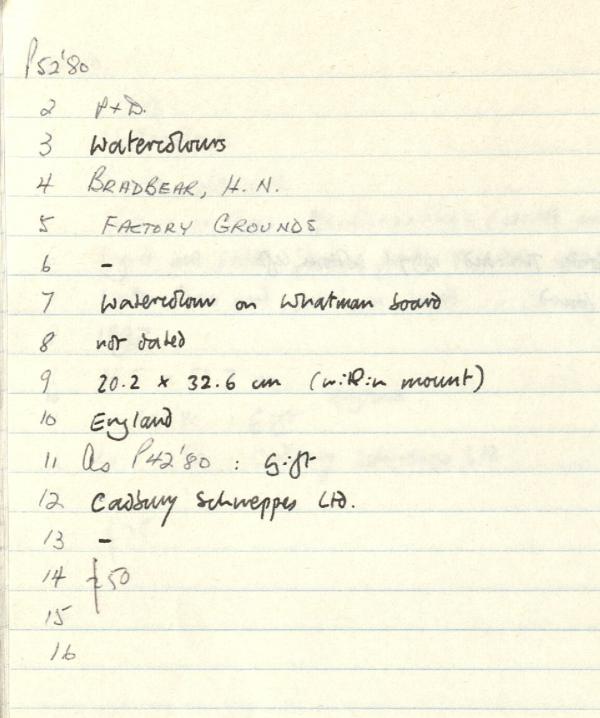 P52'80
2 P+D.
3 Watercolours
4 BRADBEAR, H. N.
5 FACTORY GROUNDS
6 -
7 Watercolour on Whatman board
8 not dated
9 20.2 x 32.6 cm (within mount)
10 England
11 As P42'80 : Gift
12 Cadbury Schweppes Ltd.
13 -
14 £50
15
16